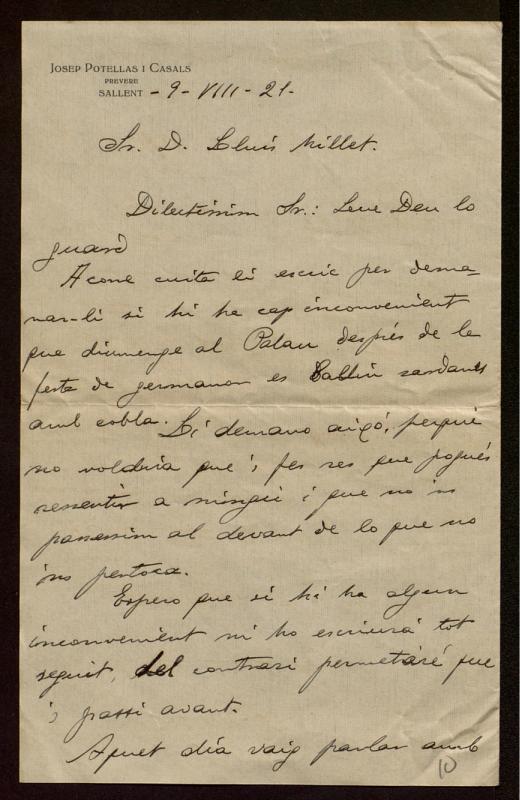 JOSEP POTELLAS I CASALS
PREVERE
SALLENT - 9 - VIII - 21 -
Sr. D. Lluis Millet.
Dilectissim Sr.: Deu lo
guard
Acore cuita li escric per dema-
nar-li si hi ha cap inconvenient
que diumenge al Palau després de la
festa de germanor es ballin sardanes
amb cobla. Li demano aixó, perqué
no voldria que's fes res que pogués
ressentir a ningú i que no 'ns
passessim al devant de lo que no
'ns pertoca.
Espero que si hi ha algun
inconvenient m'ho escriurá tot
seguit, del contrari permetaré que
's passi avant.
Aquet día vaig parlar amb
10